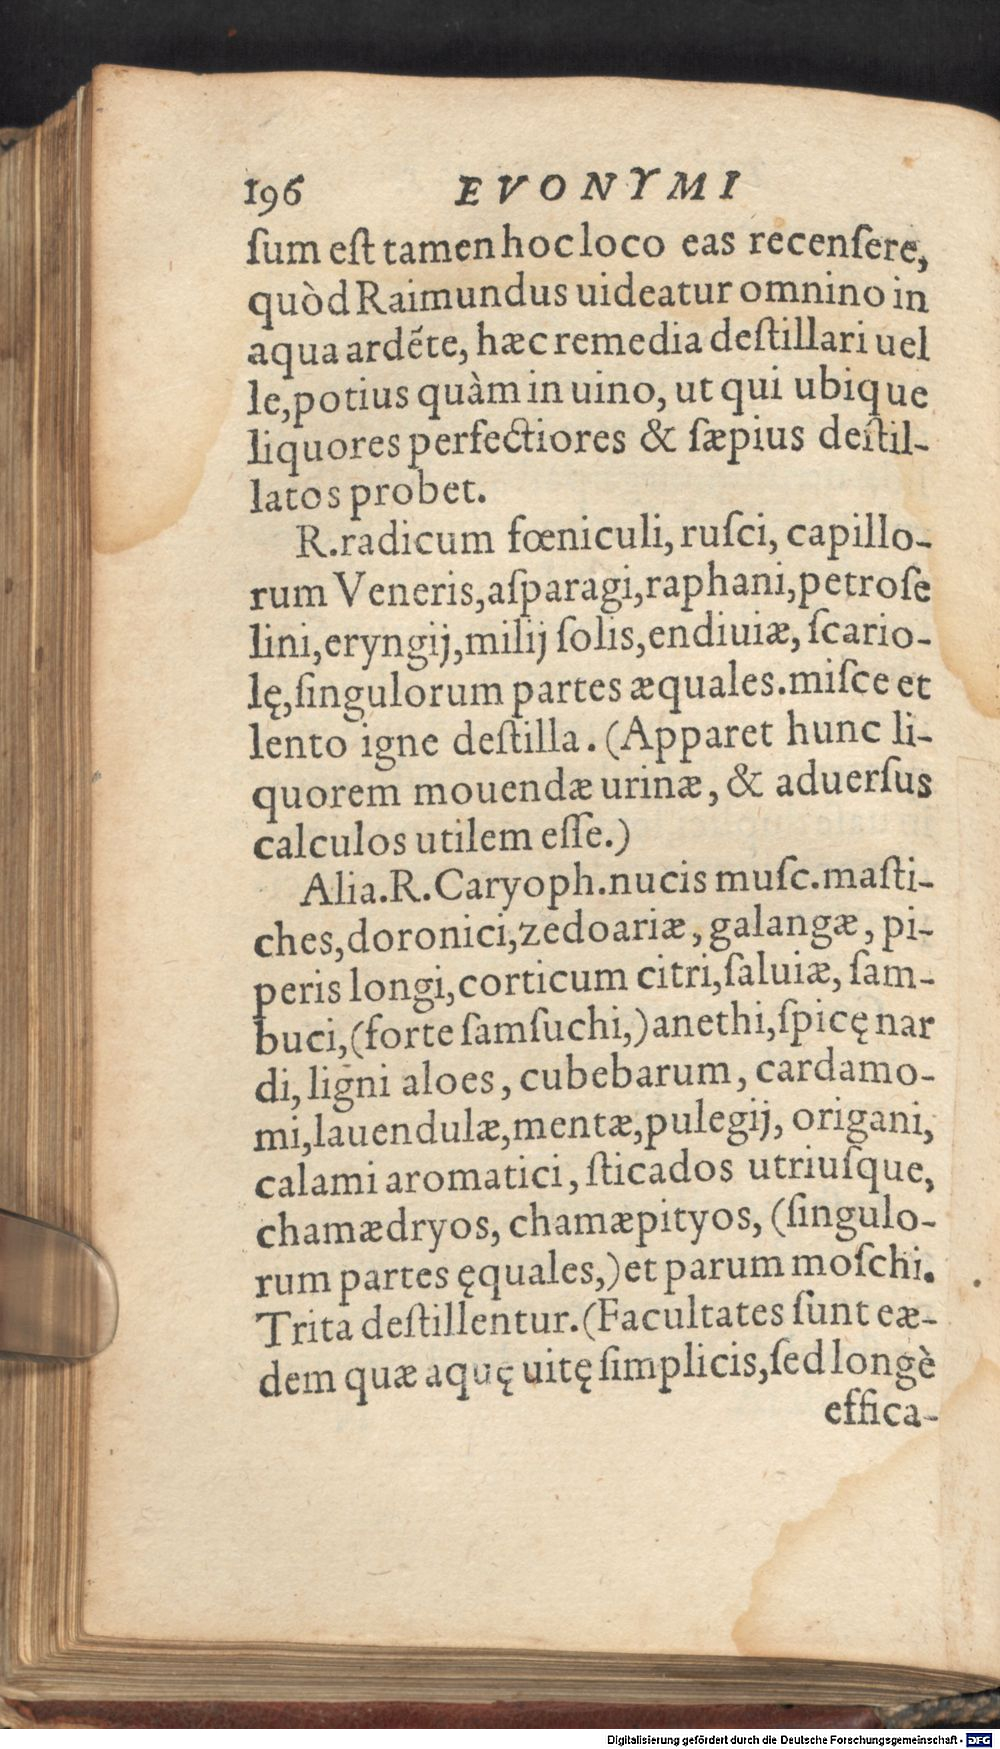 196 EVONYMI
ſum eſt tamen hoc loco eas recenſere,
quòd Raimundus uideatur omnino in
aqua ardẽte, hæc remedia deſtillari uel
le, potius quàm in uino, ut qui ubique
liquores perfectiores & ſæpius deſtil-
latos probet.
R. radicum fœniculi, ruſci, capillo-
rum Veneris, aſparagi, raphani, petroſe
lini, eryngij, milij ſolis, endiuiæ, ſcario-
lę, ſingulorum partes æquales. miſce et
lento igne deſtilla. (Apparet hunc li-
quorem mouendæ urinæ, & aduerſus
calculos utilem eſſe.)
Alia. R. Caryoph. nucis muſc. maſti-
ches, doronici, zedoariæ, galangæ, pi-
peris longi, corticum citri, ſaluiæ, ſam-
buci, (forte ſamſuchi,) anethi, ſpicę nar
di, ligni aloes, cubebarum, cardamo-
mi, lauendulæ, mentæ, pulegij, origani,
calami aromatici, ſticados utriuſque,
chamædryos, chamæpityos, (ſingulo-
rum partes ęquales,) et parum moſchi.
Trita deſtillentur. (Facultates ſunt eæ-
dem quæ aquę uitę ſimplicis, ſed longè
effica-
Digitalisierung gefördert durch die Deutsche Forschungsgemeinschaft - DFG